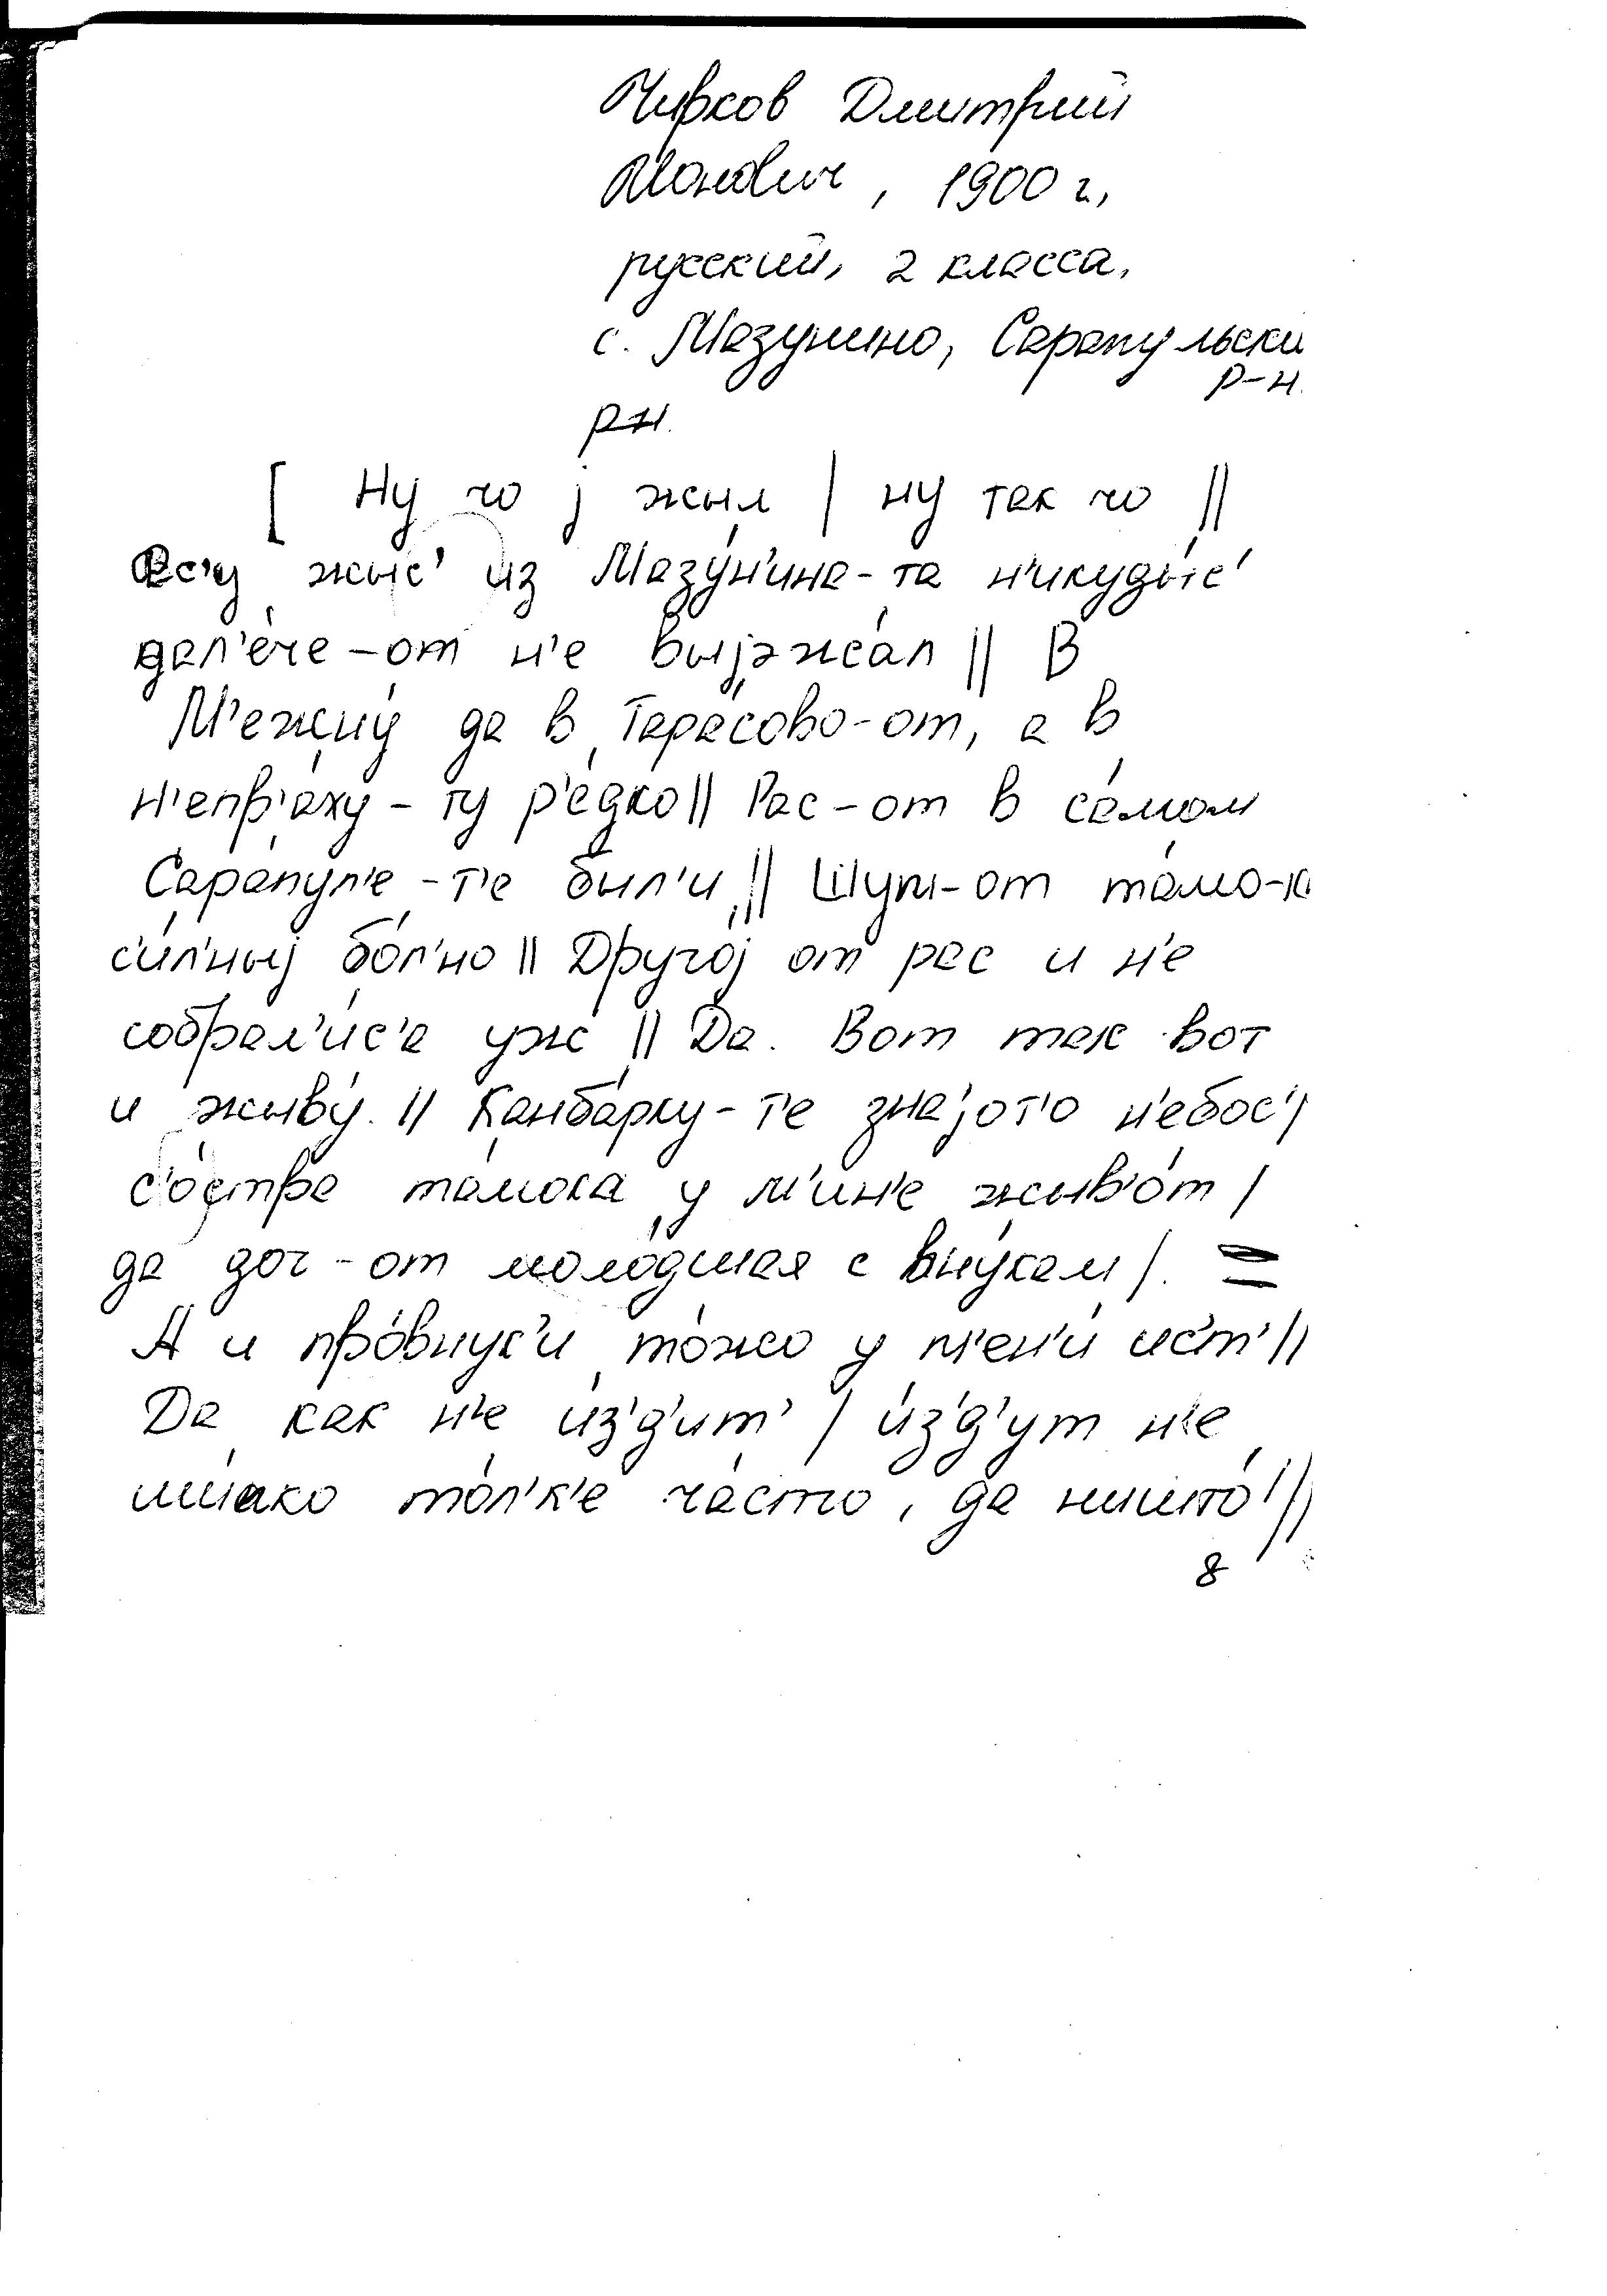 Чирков Дмитрий
Ионович, 1900 г,
русский, 2 класса,
с. Мазунино, Сарапульски
р-н.
рн.
[ Ну чо j жыл | ну так чо ||
Вс'у жыс' из Мазу́н'ина-та н'икуды́с'
дал'е́че-от н'е выjэжа́л || В
М'ежну́ да в Тара́сово-от, а в
н'епр'а́ху-ту р'е́дко || Рас-от в са́мом
Сара́пул'е-т'е был'и || Шум-от та́мо-ка
с'и́л'ныj бо́л'но || Друго́j от рас и н'е
собрал'и́с'а уж || Да. Вот так вот
и жыву́. || Канба́рку-т'е зна́jот'о н'ебос' |
с'о́стра та́мока у м'ин'е жыв'о́т |
да доч-от моло́дшая с вну́кам |. =
А и про́внук'и то́жо у м'ен'и́ ис'т' ||
Да как н'е и́з'д'ит' | и́з'д'ут н'е
шы́ако то́л'к'е ча́сто, да ништо́! ||
8